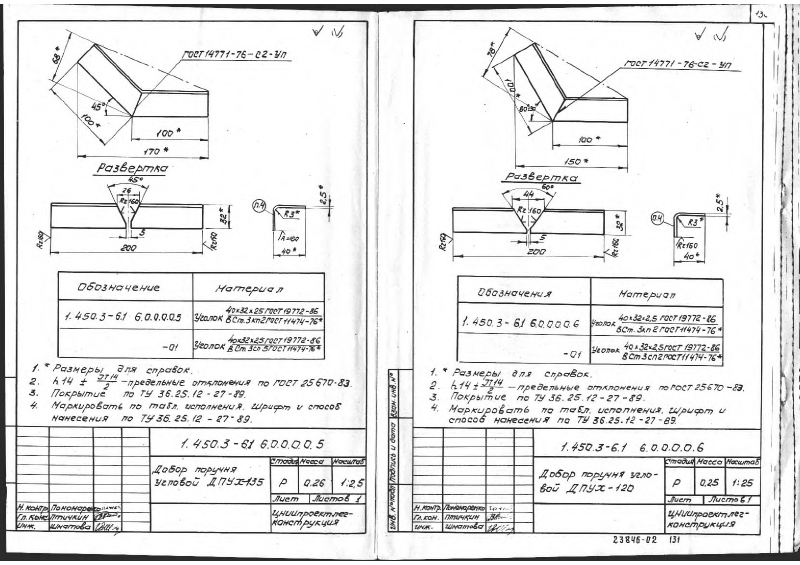 ГОСТ 14771-76-С2-Уп
68*
45°
100*
100*
170*
Развертка
45°
26
Rz160
5
32*
200
Rz160
Rz160
п.4
R3*
2,5*
40*
Обозначение
Материал
1.450.3-6.1 6.0.0.0.0.5
Уголок 40х32х2,5 ГОСТ 19772-86
В Ст.3кп2 ГОСТ 11474-76*
-01
Уголок 40х32х2,5 ГОСТ 19772-86
В Ст.3сп5 ГОСТ 11474-76*
1. * Размеры для справок.
2. h14 ± JT14/2 - предельные отклонения по ГОСТ 25670-83.
3. Покрытие по ТУ 36.25.12-27-89.
4. Маркировать по табл. исполнения. Шрифт и способ
нанесения по ТУ 36.25.12-27-89.
1.450.3-6.1 6.0.0.0.0.5
Добор поручня
угловой ДПУХ-135
Стадия Масса Масштаб
Р 0.26 1:2,5
Лист Листов 1
Н.контр. Пономаренко
Гл. конс. Птичкин
Инж. Шматова
ЦНИИпроектлег-
конструкция
13
ГОСТ 14771-76-С2-Уп
70*
100*
100*
150*
Развертка
60°
44
Rz160
5
32*
200
Rz160
Rz160
п.4
R3*
Rz160
2,5*
40*
Обозначения
Материал
1.450.3-6.1 6.0.0.0.0.6
Уголок 40х32х2,5 ГОСТ 19772-86
В Ст.3кп2 ГОСТ 11474-76*
-01
Уголок 40х32х2,5 ГОСТ 19772-86
В Ст3сп2 ГОСТ 11474-76*
1. * Размеры для справок.
2. h14 ± JT14/2 - предельные отклонения по ГОСТ 25670-83.
3. Покрытие по ТУ 36.25.12-27-89.
4. Маркировать по табл. исполнения. Шрифт и
способ нанесения по ТУ 36.25.12-27-89.
Инв. № подл. Подпись и дата Взам. инв. №
1.450.3-6.1 6.0.0.0.0.6
Добор поручня угло-
вой ДПУХ-120
Стадия Масса Масштаб
Р 0.25 1:25
Лист Листов 1
Н.контр. Пономаренко
Гл.кон. Птичкин
Инж. Шматова
ЦНИИпроектлег-
конструкция
23846-02 131